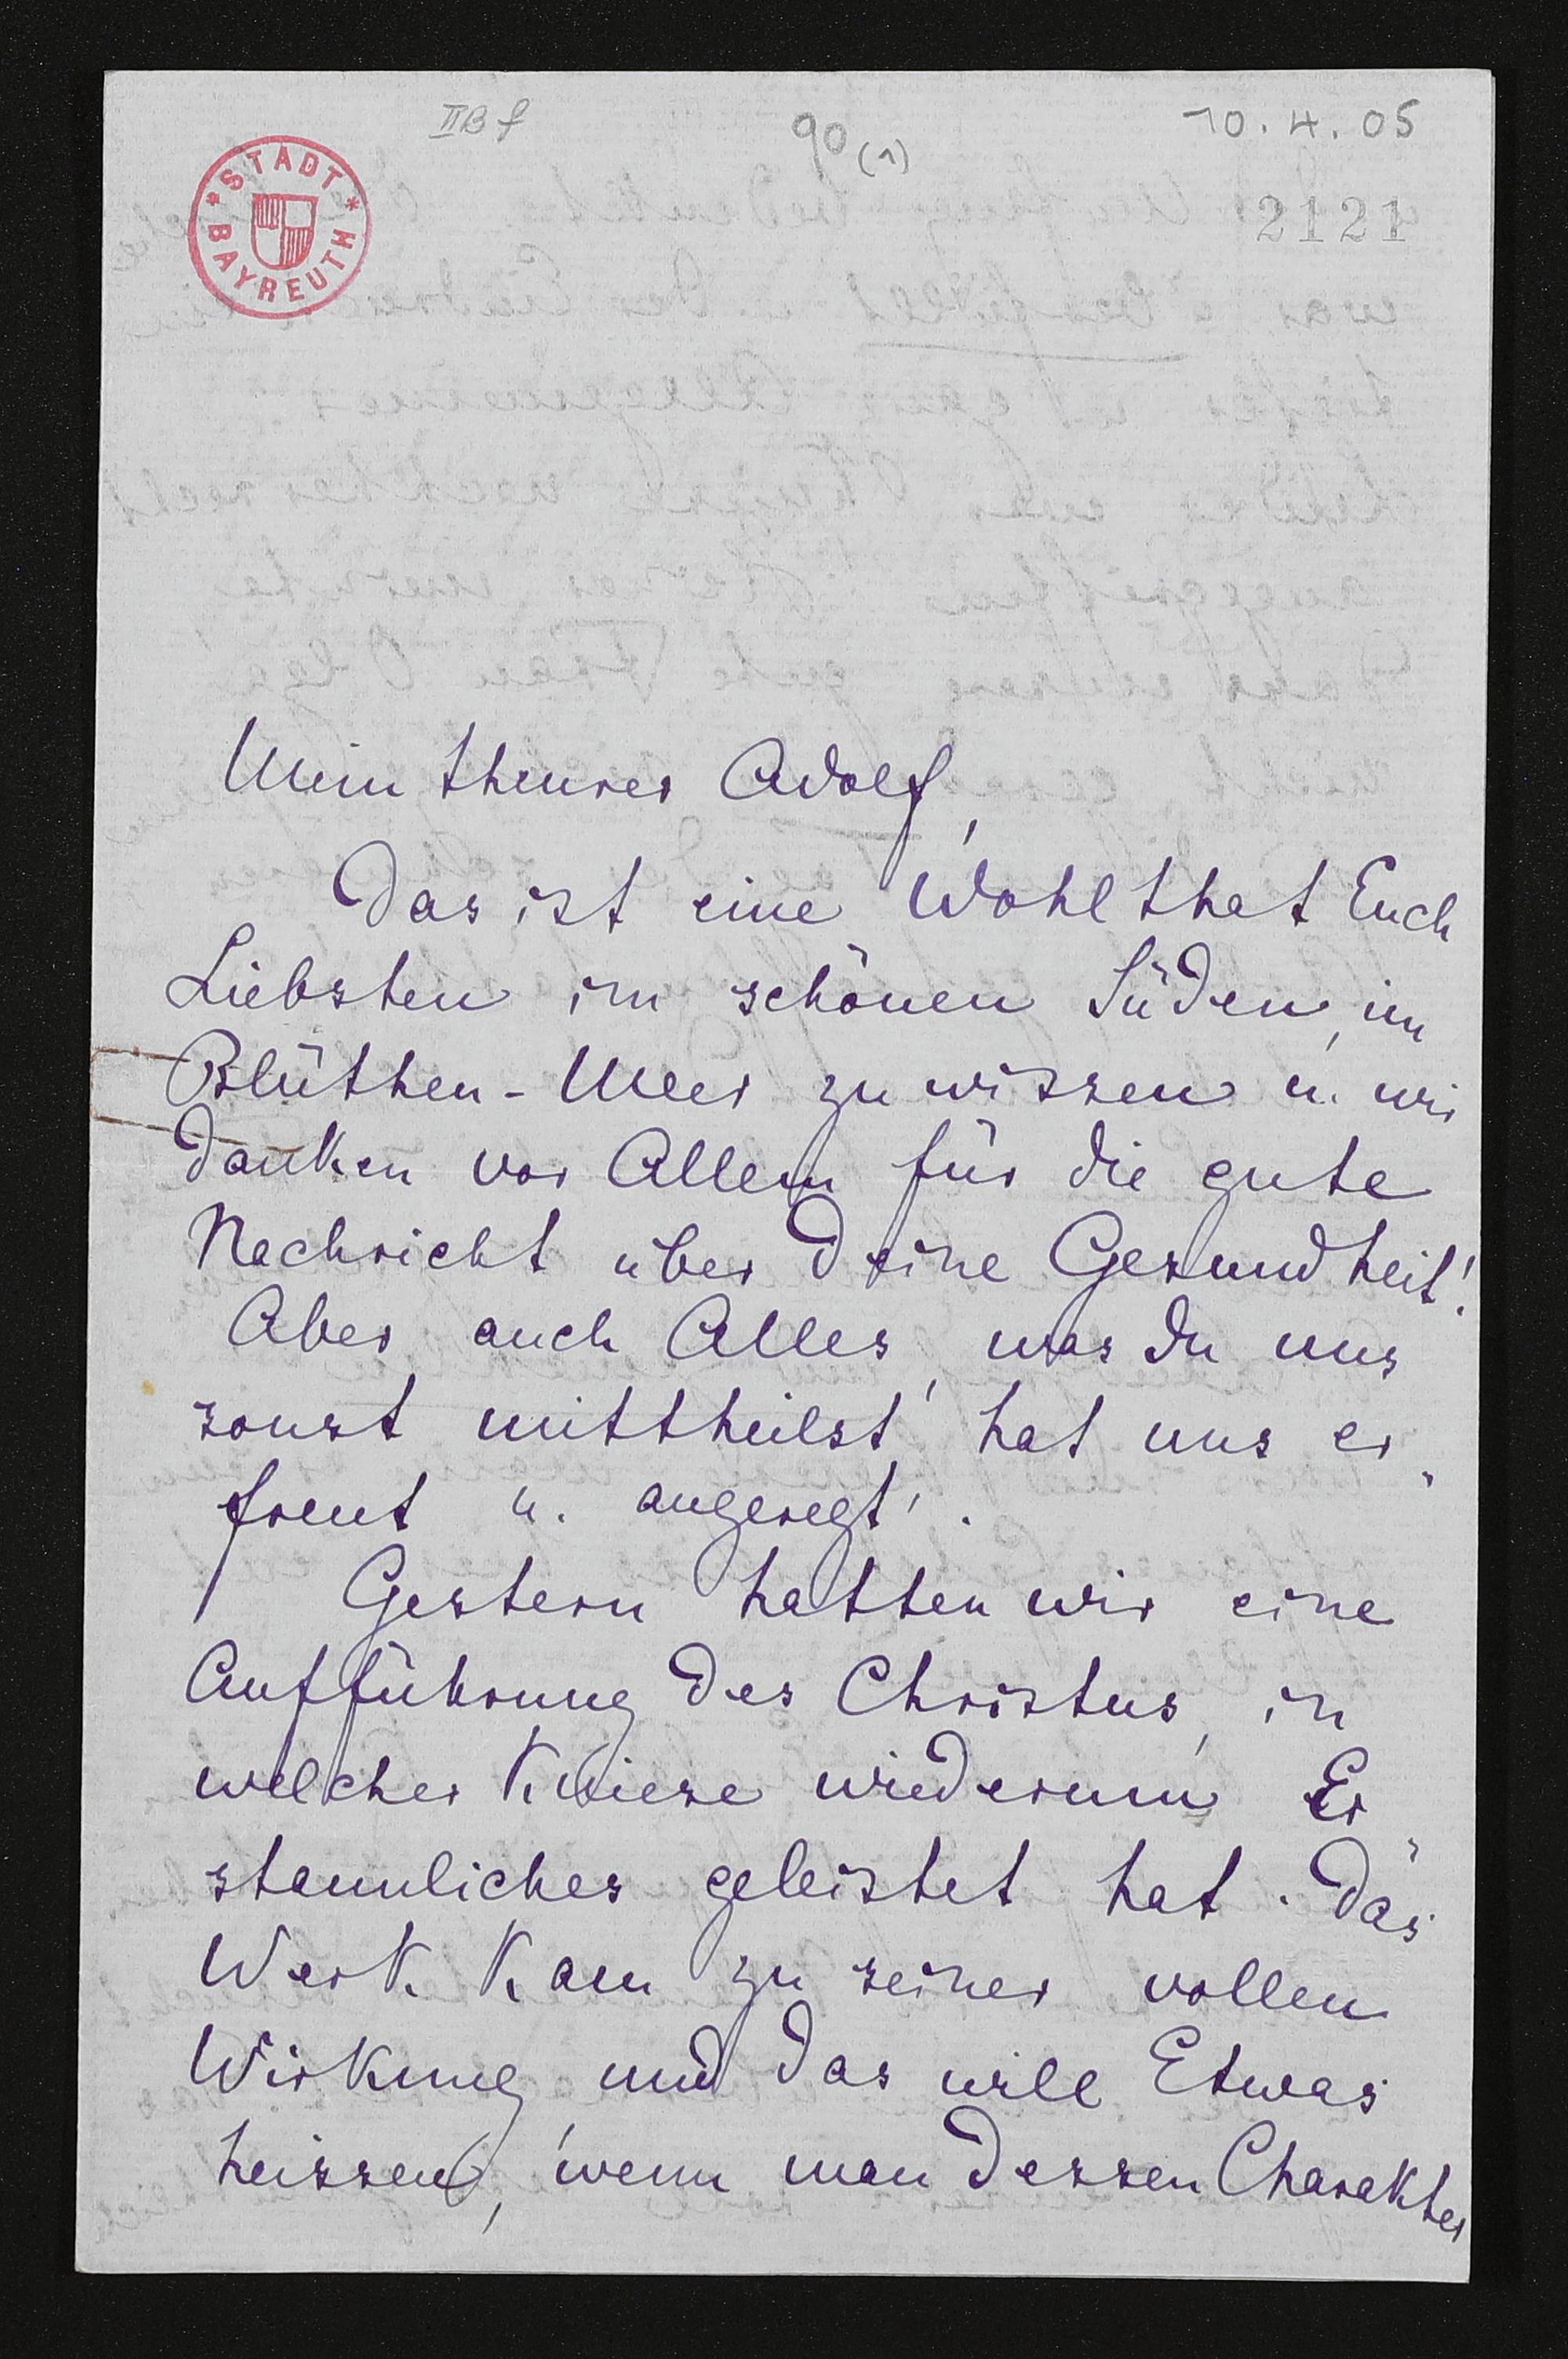 IIB f
90 (1)
10. 4. 05
* STADT *
BAYREUTH
2121
Mein theurer Adolf,
Das ist eine Wohlthat Euch
Liebsten im schönen Süden, im
Blüthen-Meer zu wissen u. wir
danken vor Allem für die gute
Nachricht über Deine Gesundheit!
Aber auch Alles, was Du uns
sonst mittheilst, hat uns er-
freut u. angeregt.
Gestern hatten wir eine
Aufführung des Christus, in
welcher Kniese wiederum Er-
staunliches geleistet hat. Das
Werk kam zu seiner vollen
Wirkung und das will Etwas
heissen, wenn man dessen Charakter